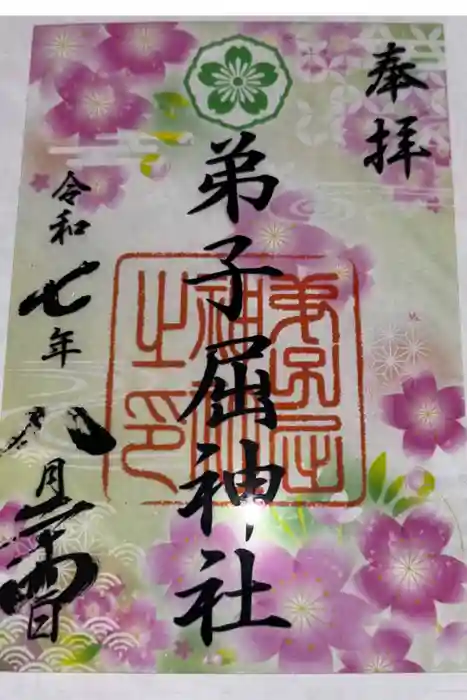 奉拝
弟子屈神社
弟子屈神社之印
令和七年八月二十四日